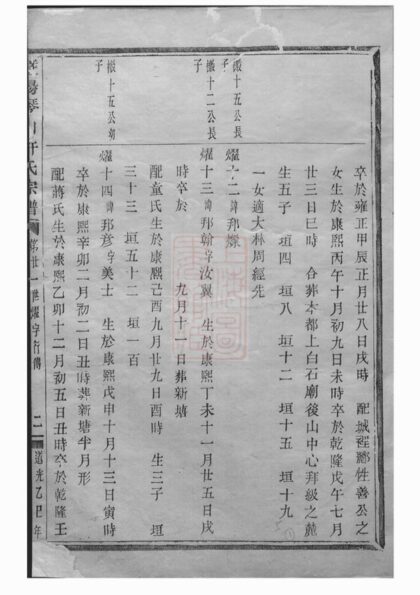 卒於雍正甲辰正月廿八日戌時 配城裡鄒性善公之
女生於康熙丙午十月初九日未時卒於乾隆戊午七月
廿三日巳時 合葬本都上白石廟後山中心拜級之麓
生五子 垣四 垣八 垣十二 垣十五 垣十九
一女適大林周經先
橵十五公長子
燿十二諱邦爍
橵十二公長子
燿十三諱邦翰字汝翼 生於康熙丁未十一月廿五日戌
時卒於 九月十一日葬新塘
配童氏生於康熙己酉九月廿九日酉時 生三子 垣
三十三 垣五十二 垣一百
橵十五公幼子
燿十四諱邦彥字美士 生於康熙戊申十月十三日寅時
卒於康熙辛卯二月初二日丑時葬新塘半月形
配蔣氏生於康熙乙卯十二月初五日丑時卒於乾隆壬
陽琴川許氏宗譜 第廿一世燿字行傳 二 道光乙巳年